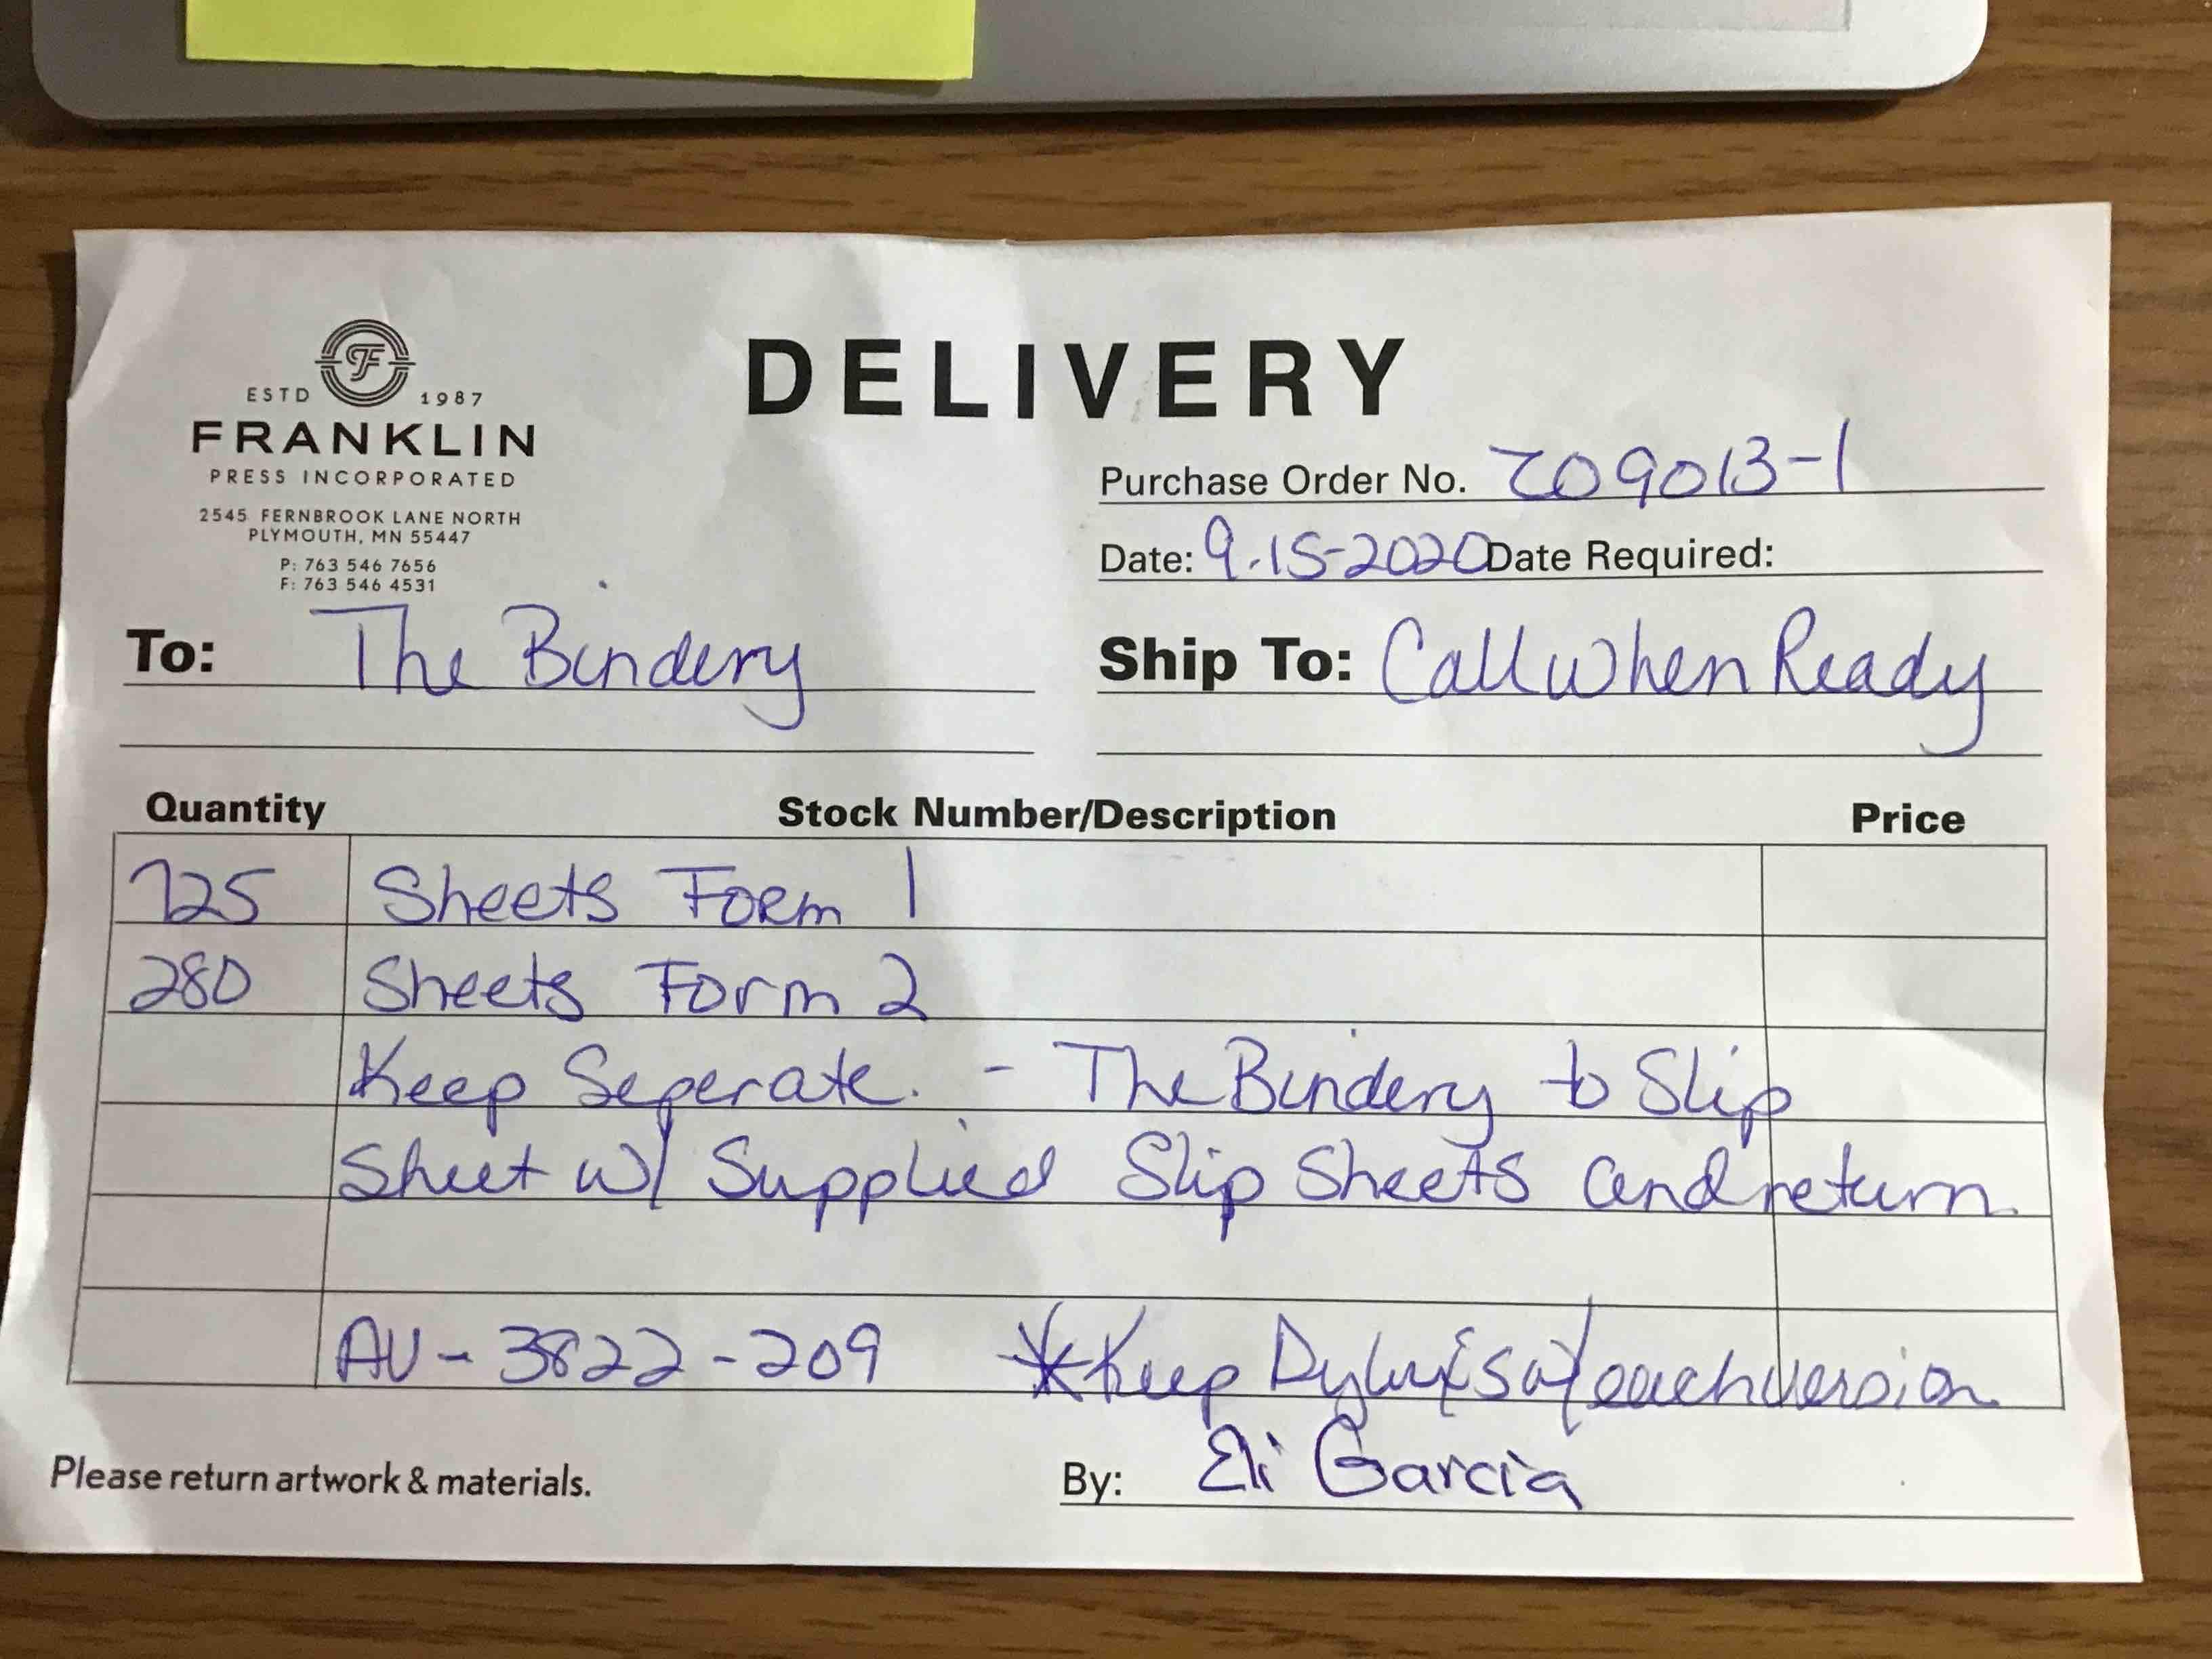 ESTD 1987
FRANKLIN
PRESS INCORPORATED
2545 FERNBROOK LANE NORTH
PLYMOUTH, MN 55447
P: 763 546 7656
F: 763 546 4531
DELIVERY
Purchase Order No. 209013-1
Date: 9.15-2020 Date Required:
To: The Bindery
Ship To: Call when Ready
Quantity Stock Number/Description Price
725 Sheets Form 1
280 Sheets Form 2
Keep Seperate. - The Bindery to Slip
Sheet w/ Supplied Slip Sheets and return.
AU-3822-209 *Keep Dylux's w/ each version
Please return artwork & materials.
By: Eli Garcia